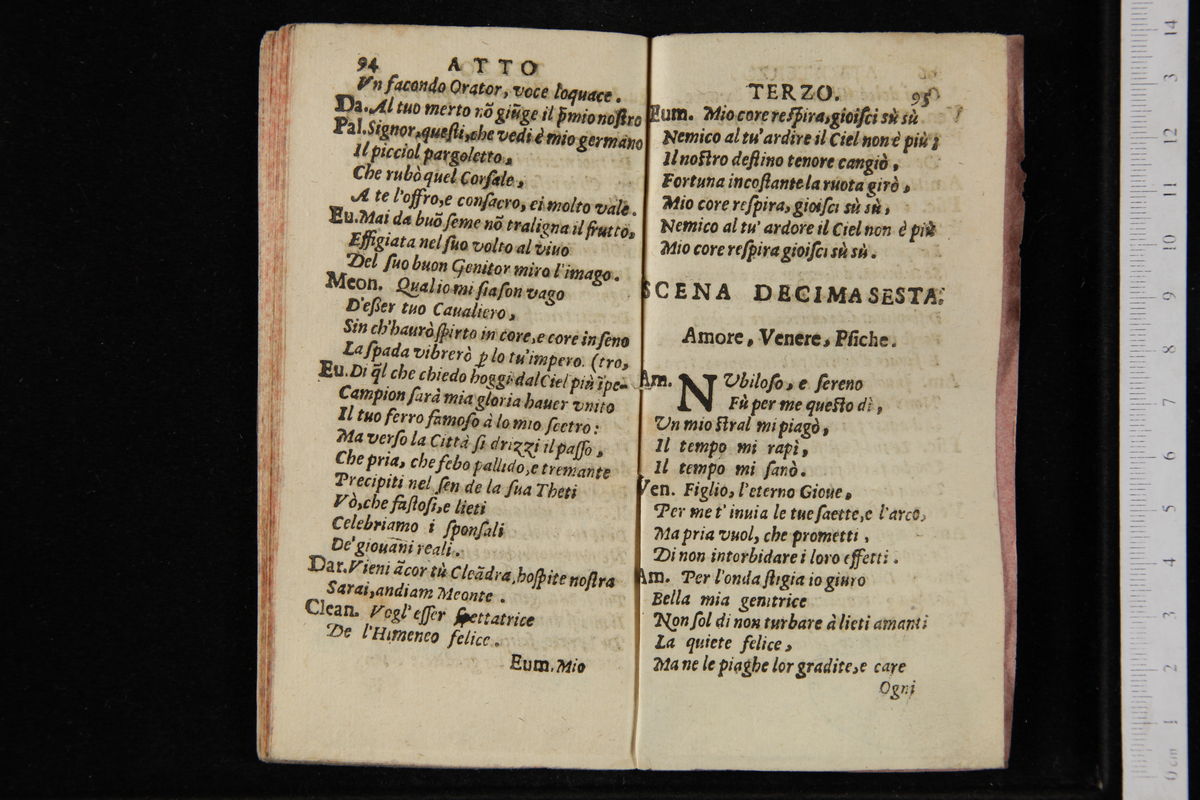 94 ATTO
Vn facondo Orator, voce loquace.
Da. Al tuo merto nō giūge il p̄mio noſtro
Pal. Signor, queſti, che vedi è mio germano
Il picciol pargoletto,
Che rubò quel Corſale,
A te l'offro, e conſacro, ei molto vale.
Eu. Mai da buō ſeme nō traligna il frutto,
Effigiata nel ſuo volto al viuo
Del ſuo buon Genitor miro l'imago.
Meon. Qual io mi ſia ſon vago
D'eßer tuo Caualiero,
Sin ch'haurò ſpirto in core, e core in ſeno
La ſpada vibrerò ꝑ lo tu'impero. (tro,
Eu. Di q̄l che chiedo hoggi dal Ciel più īpe-
Campion ſarà mia gloria hauer vnito
Il tuo ferro famoſo à lo mio ſcetro:
Ma verſo la Città ſi drizzi il paſſo,
Che pria, che febo pallido, e tremante
Precipiti nel ſen de la ſua Theti
Vò, che faſtoſi, e lieti
Celebriamo i ſponſali
De' giouani reali.
Dar. Vieni ācor tù Cleādra, hoſpite noſtra
Sarai, andiam Meonte.
Clean. Vogl'eſſer ſpettatrice
De l'Himeneo felice.
Eum. Mio
TERZO. 95
Eum. Mio core reſpira, gioiſci sù sù
Nemico al tu' ardire il Ciel non è più;
Il noſtro deſtino tenore cangiò,
Fortuna incoſtante la ruota girò,
Mio core reſpira, gioiſci sù sù,
Nemico al tu' ardore il Ciel non è più
Mio core reſpira gioiſci sù sù.
SCENA DECIMASESTA.
Amore, Venere, Pſiche.
Am. NVbiloſo, e ſereno
Fù per me queſto dì,
Vn mio ſtral mi piagò,
Il tempo mi rapì,
Il tempo mi ſanò.
Ven. Figlio, l'eterno Gioue,
Per me t' inuia le tue ſaette, e l'arco,
Ma pria vuol, che prometti,
Di non intorbidare i loro effetti.
Am. Per l'onda ſtigia io giuro
Bella mia genitrice
Non ſol di non turbare à lieti amanti
La quiete felice,
Ma ne le piaghe lor gradite, e care
Ogni
0 cm 1 2 3 4 5 6 7 8 9 10 11 12 3 14